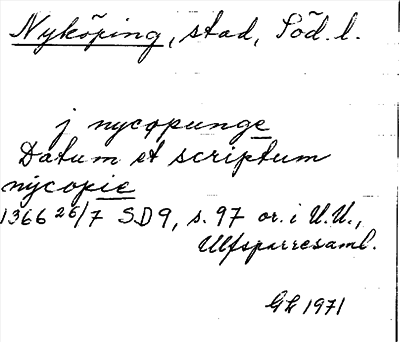 Nyköping, stad, Söd. l.
j nycopunge
Datum et scriptum
nycopie
1366 26/7 SD9, s. 97 or. i U.U.,
Ulfsparresaml.
Gh 1971